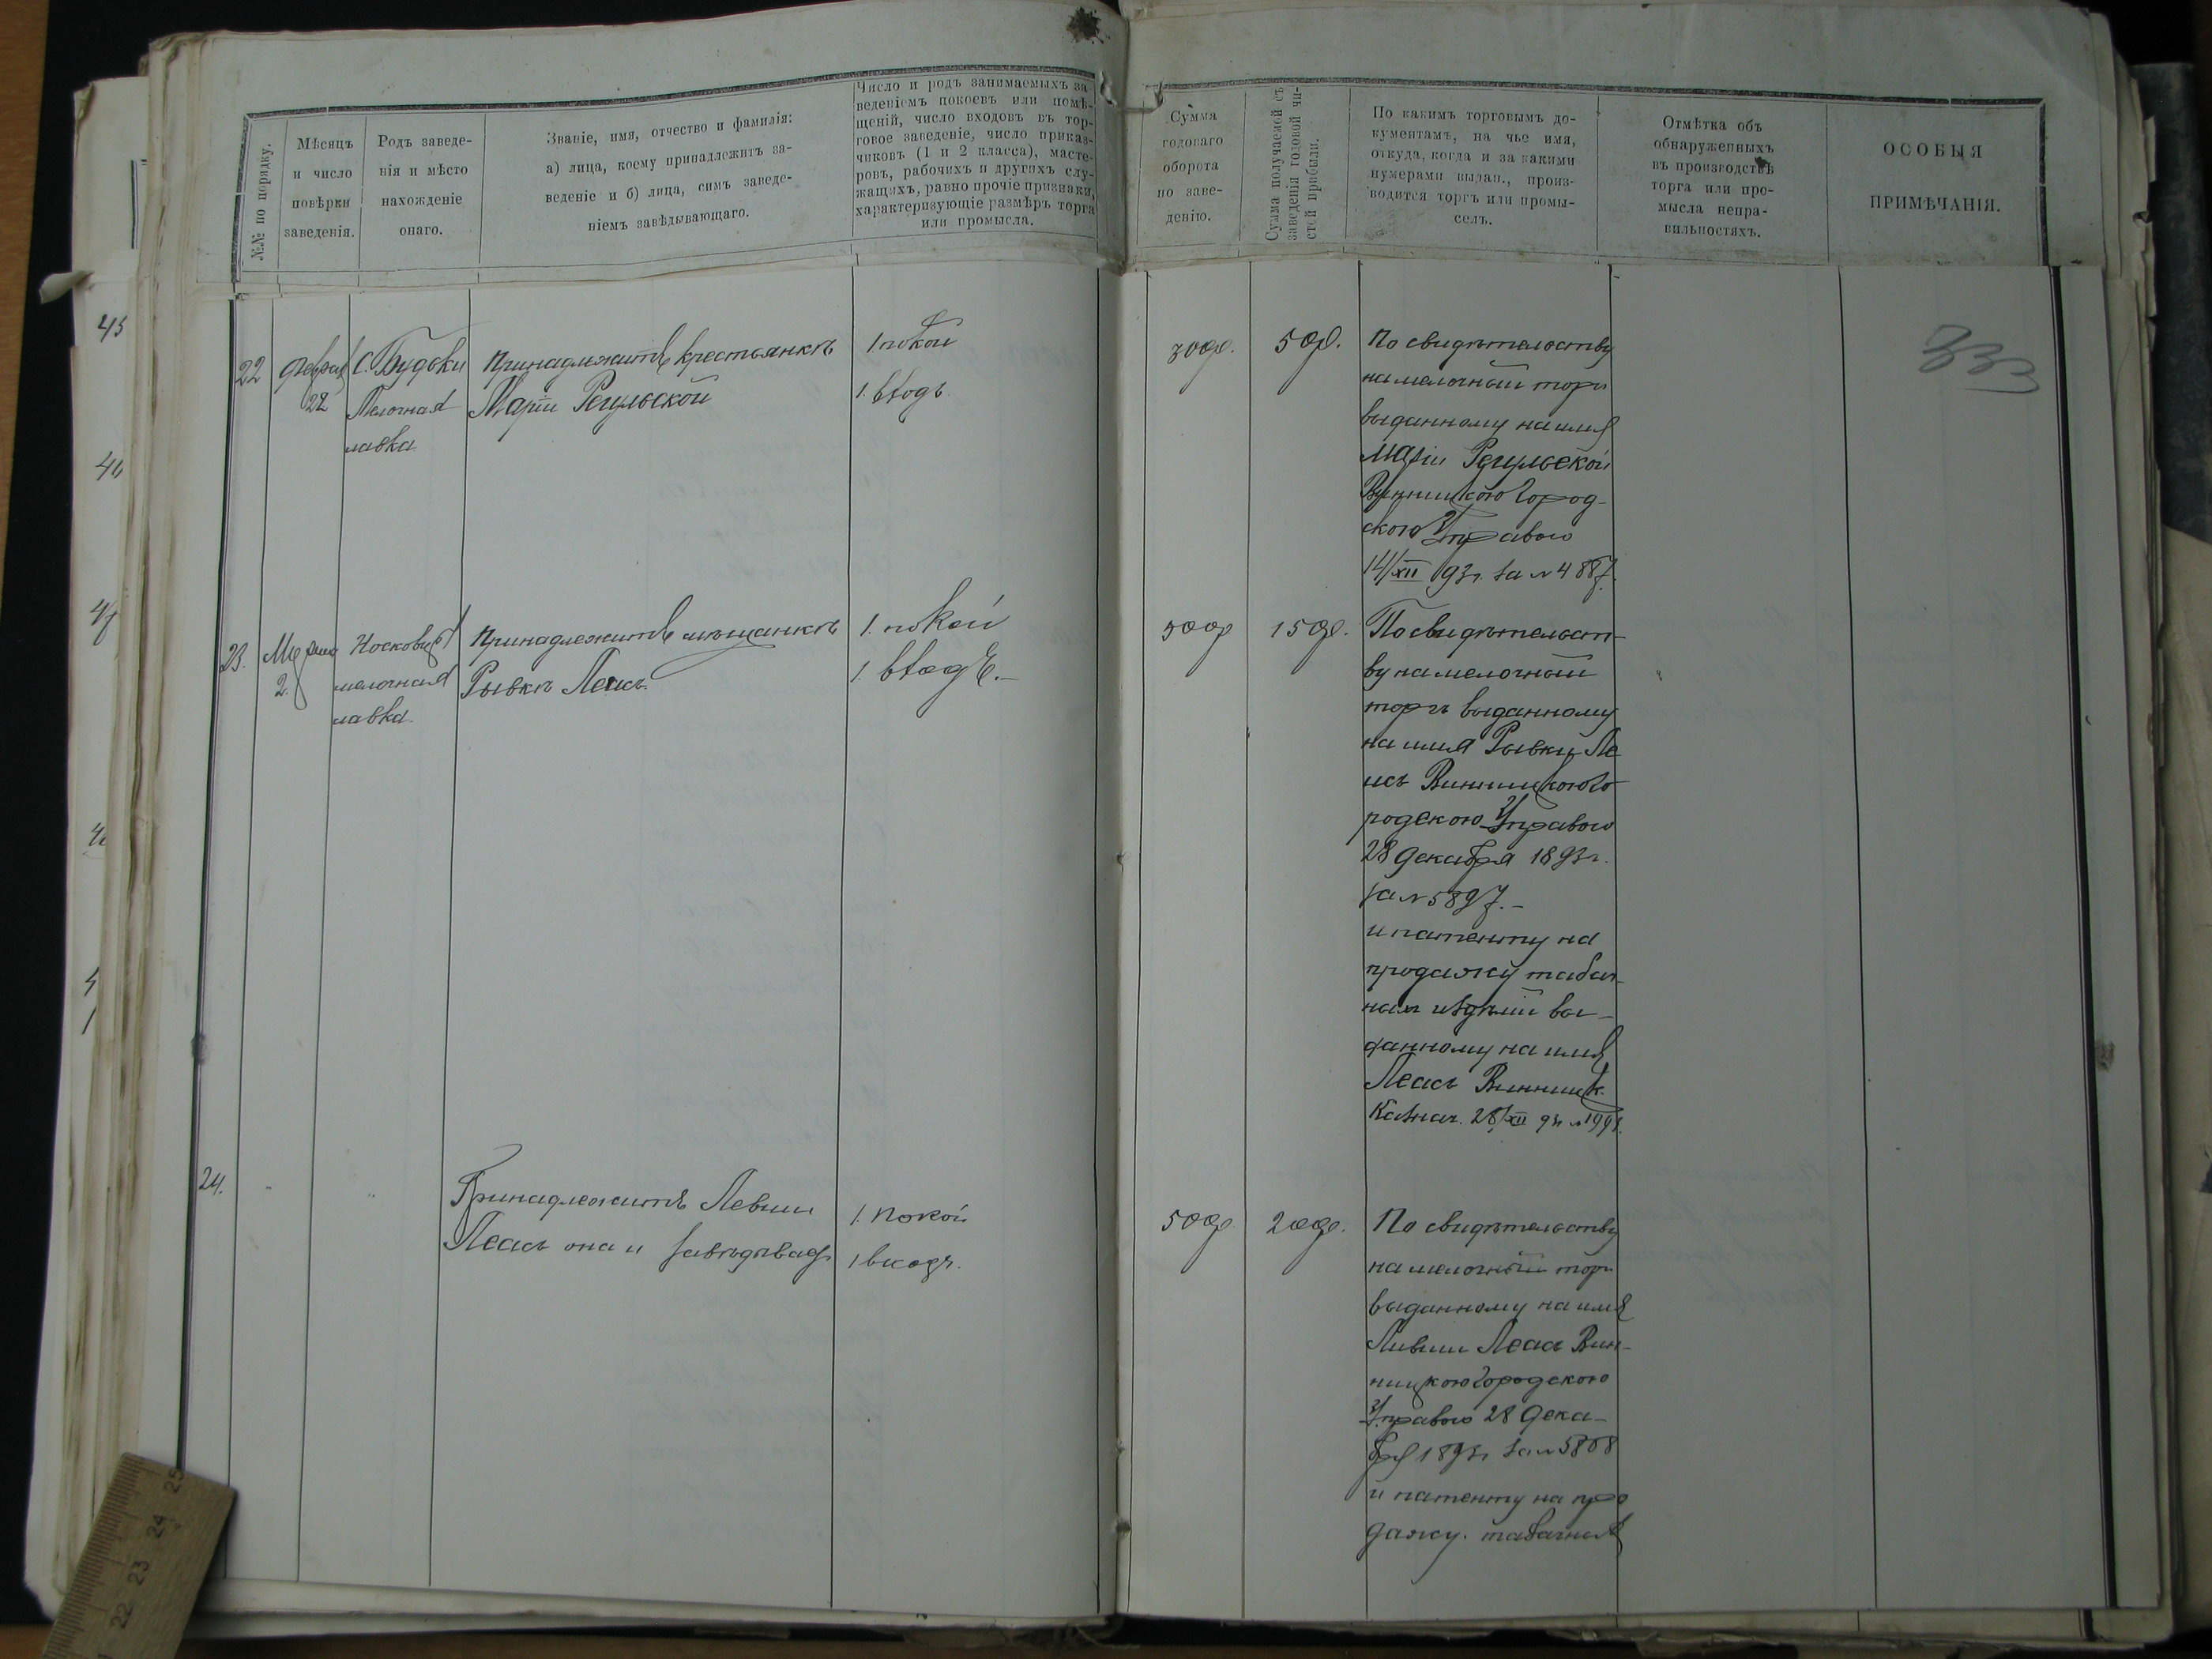 №№ по порядку.
Мѣсяцъ
и число
повѣрки
заведенія.
Родъ заведе-
нія и мѣсто
нахожденіе
онаго.
Званіе, имя, отчество и фамилія:
а) лица, коему принадлежитъ за-
веденіе и б) лица, симъ заведе-
ніемъ завѣдывающаго.
Число и родъ занимаемыхъ за-
веденіемъ покоевъ или помѣ-
щеній, число входовъ въ тор-
говое заведеніе, число приказ-
чиковъ (1 и 2 класса), масте-
ровъ, рабочихъ и другихъ слу-
жащихъ, равно прочіе признаки,
характеризующіе размѣръ торга
или промысла.
Сумма
годоваго
оборота
по заве-
денію.
Сумма получаемой съ
заведенія годовой чи-
стой прибыли.
По какимъ торговымъ до-
кументамъ, на чье имя,
откуда, когда и за какими
нумерами выдан., произ-
водится торгъ или промы-
селъ.
Отмѣтка объ
обнаруженныхъ
въ производствѣ
торга или про-
мысла непра-
вильностяхъ.
ОСОБЫЯ
ПРИМѢЧАНІЯ.
333
45
46
47
22
Феврал
22
С. Будьки
Мелочная
лавка
Принадлежитъ крестьянкѣ
Маріи Регульской
1 покой
1. входъ
300р.
50р.
По свидѣтельству
на мелочный торгъ
выданному на имя
Маріи Регульской
Винницкою Город-
скою Управою
14/XII 93г. за № 4887.
23.
Марта
2.
Носковцы
мелочная
лавка.
Принадлежитъ мѣщанкѣ
Рывкѣ Леись.
1. покой
1. входъ.-
500р
150р.
По свидѣтельст-
ву на мелочный
торгъ выданному
на имя Рывки Ле
ись Винницкою Го
родскою Управою
28 Декабря 1893г.
за № 5897.-
и патенту на
продажу табач-
ныхъ издѣлій вы-
данному на имя
Леись Винницк.
Казнач. 28/XII 93г №
24.
Принадлежитъ Левши
Леись она и завѣдывае
1. покой
1 входъ.
500р
200р.
По свидѣтельству
на мелочный торгъ
выданному на имя
Лившы Леись Вин-
ницкою Городскою
Управою 28 Дека-
бря 1893г за № 5868
и патенту на про
дажу. табачныхъ
22 23 24 25